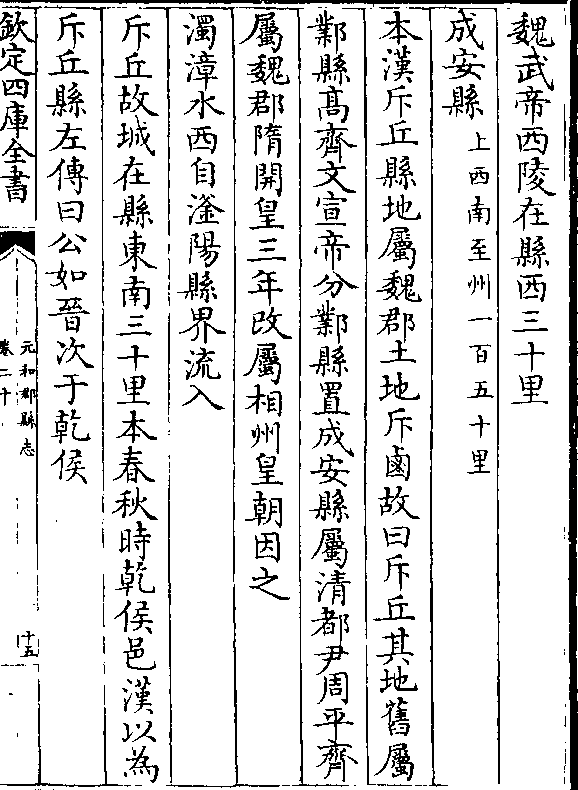 魏武帝西陵在縣西三十里
成安縣上西南至州一百五十里
本漢斥丘縣地屬魏郡土地斥鹵故曰斥丘其地舊屬
鄴縣髙齊文宣帝分鄴縣置成安縣屬清都尹周平齊
屬魏郡隋開皇三年改屬相州皇朝因之
濁漳水西自滏陽縣界流入
斥丘故城在縣東南三十里本春秋時乾侯邑漢以為
斥丘縣左傳曰公如晉次于乾侯
欽定四庫全書
元和郡縣志
卷二十
十五